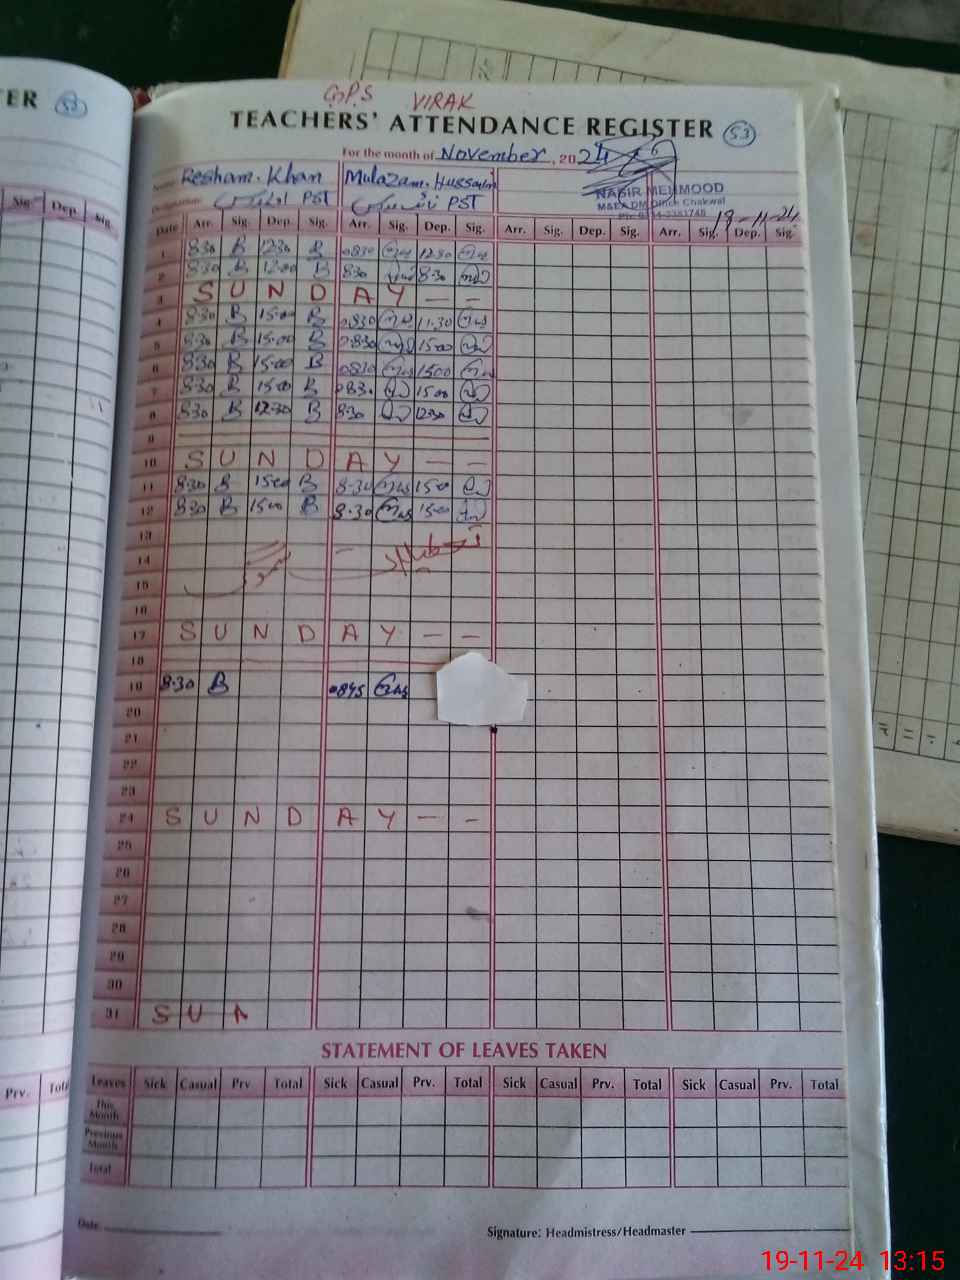 G.P.S VIRAK
TER 52
TEACHERS' ATTENDANCE REGISTER 53
For the month of November, 2024
Name Resham. Khan Mulazam. Hussain
Designation PST PST
NASIR MEHMOOD
M&EA DMO Chakwal
19-11-24
Sig. Dep. Sig.
Date Arr. Sig. Dep. Sig. Arr. Sig. Dep. Sig. Arr. Sig. Dep. Sig. Arr. Sig. Dep. Sig.
1 8:30 B 12:30 B 0830 1230
2 8:30 B 12:00 B 8:30 8:30
3 S U N D A Y — —
4 8:30 B 15:00 B 0830 11:30
5 8:30 B 15:00 B 0830 1500
6 8:30 B 15:00 B 0830 1500
7 8:30 B 15:00 B 083. 1500
8 8:30 B 12:30 B 8:30 1230
9
10 S U N D A Y — —
11 8:30 B 1500 B 8-30 1500
12 8:30 B 1500 B 8.30 1500
13
14
15
16
17 S U N D A Y — —
18
19 8:30 B 0845
20
21
22
23
24 S U N D A Y — —
25
26
27
28
29
30
31 S U N
STATEMENT OF LEAVES TAKEN
Prv. Total
Leaves Sick Casual Prv Total Sick Casual Prv. Total Sick Casual Prv. Total Sick Casual Prv. Total
This Month
Previous Month
Total
Date
Signature: Headmistress/Headmaster
19-11-24 13:15